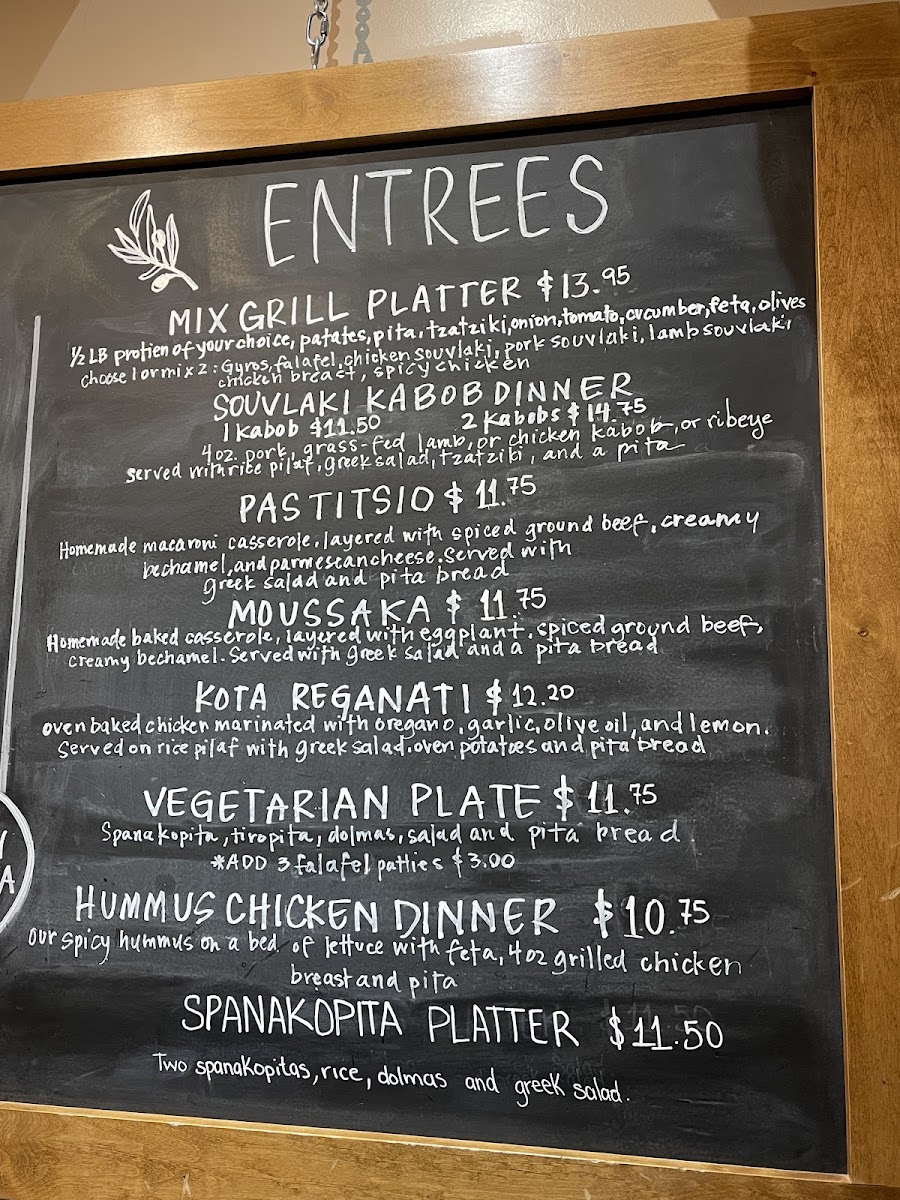 ENTREES
MIX GRILL PLATTER $13.95
1/2 LB protien of your choice, patates, pita, tzatziki, onion, tomato, cucumber, feta, olives
choose 1 or mix 2: Gyros, falafel, chicken souvlaki, pork souvlaki, lamb souvlaki,
chicken breast, spicy chicken
SOUVLAKI KABOB DINNER
1 Kabob $11.50 2 Kabobs $14.75
4oz. pork, grass-fed lamb, or chicken kabob, or ribeye
served with rice pilaf, greek salad, tzatziki, and a pita
PASTITSIO $11.75
Homemade macaroni casserole, layered with spiced ground beef, creamy
bechamel, and parmesean cheese. Served with
greek salad and pita bread
MOUSSAKA $11.75
Homemade baked casserole, layered with eggplant, spiced ground beef,
creamy bechamel. Served with greek salad and a pita bread
KOTA REGANATI $12.20
oven baked chicken marinated with oregano, garlic, olive oil, and lemon.
Served on rice pilaf with greek salad, oven potatoes and pita bread
VEGETARIAN PLATE $11.75
Spanakopita, tiropita, dolmas, salad and pita bread
*ADD 3 falafel patties $3.00
HUMMUS CHICKEN DINNER $10.75
our spicy hummus on a bed of lettuce with feta, 4oz grilled chicken
breast and pita
SPANAKOPITA PLATTER $11.50
Two spanakopitas, rice, dolmas and greek salad.